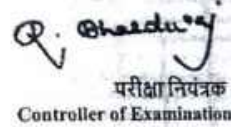 R. Bhaduraj
परीक्षा नियंत्रक
Controller of Examination